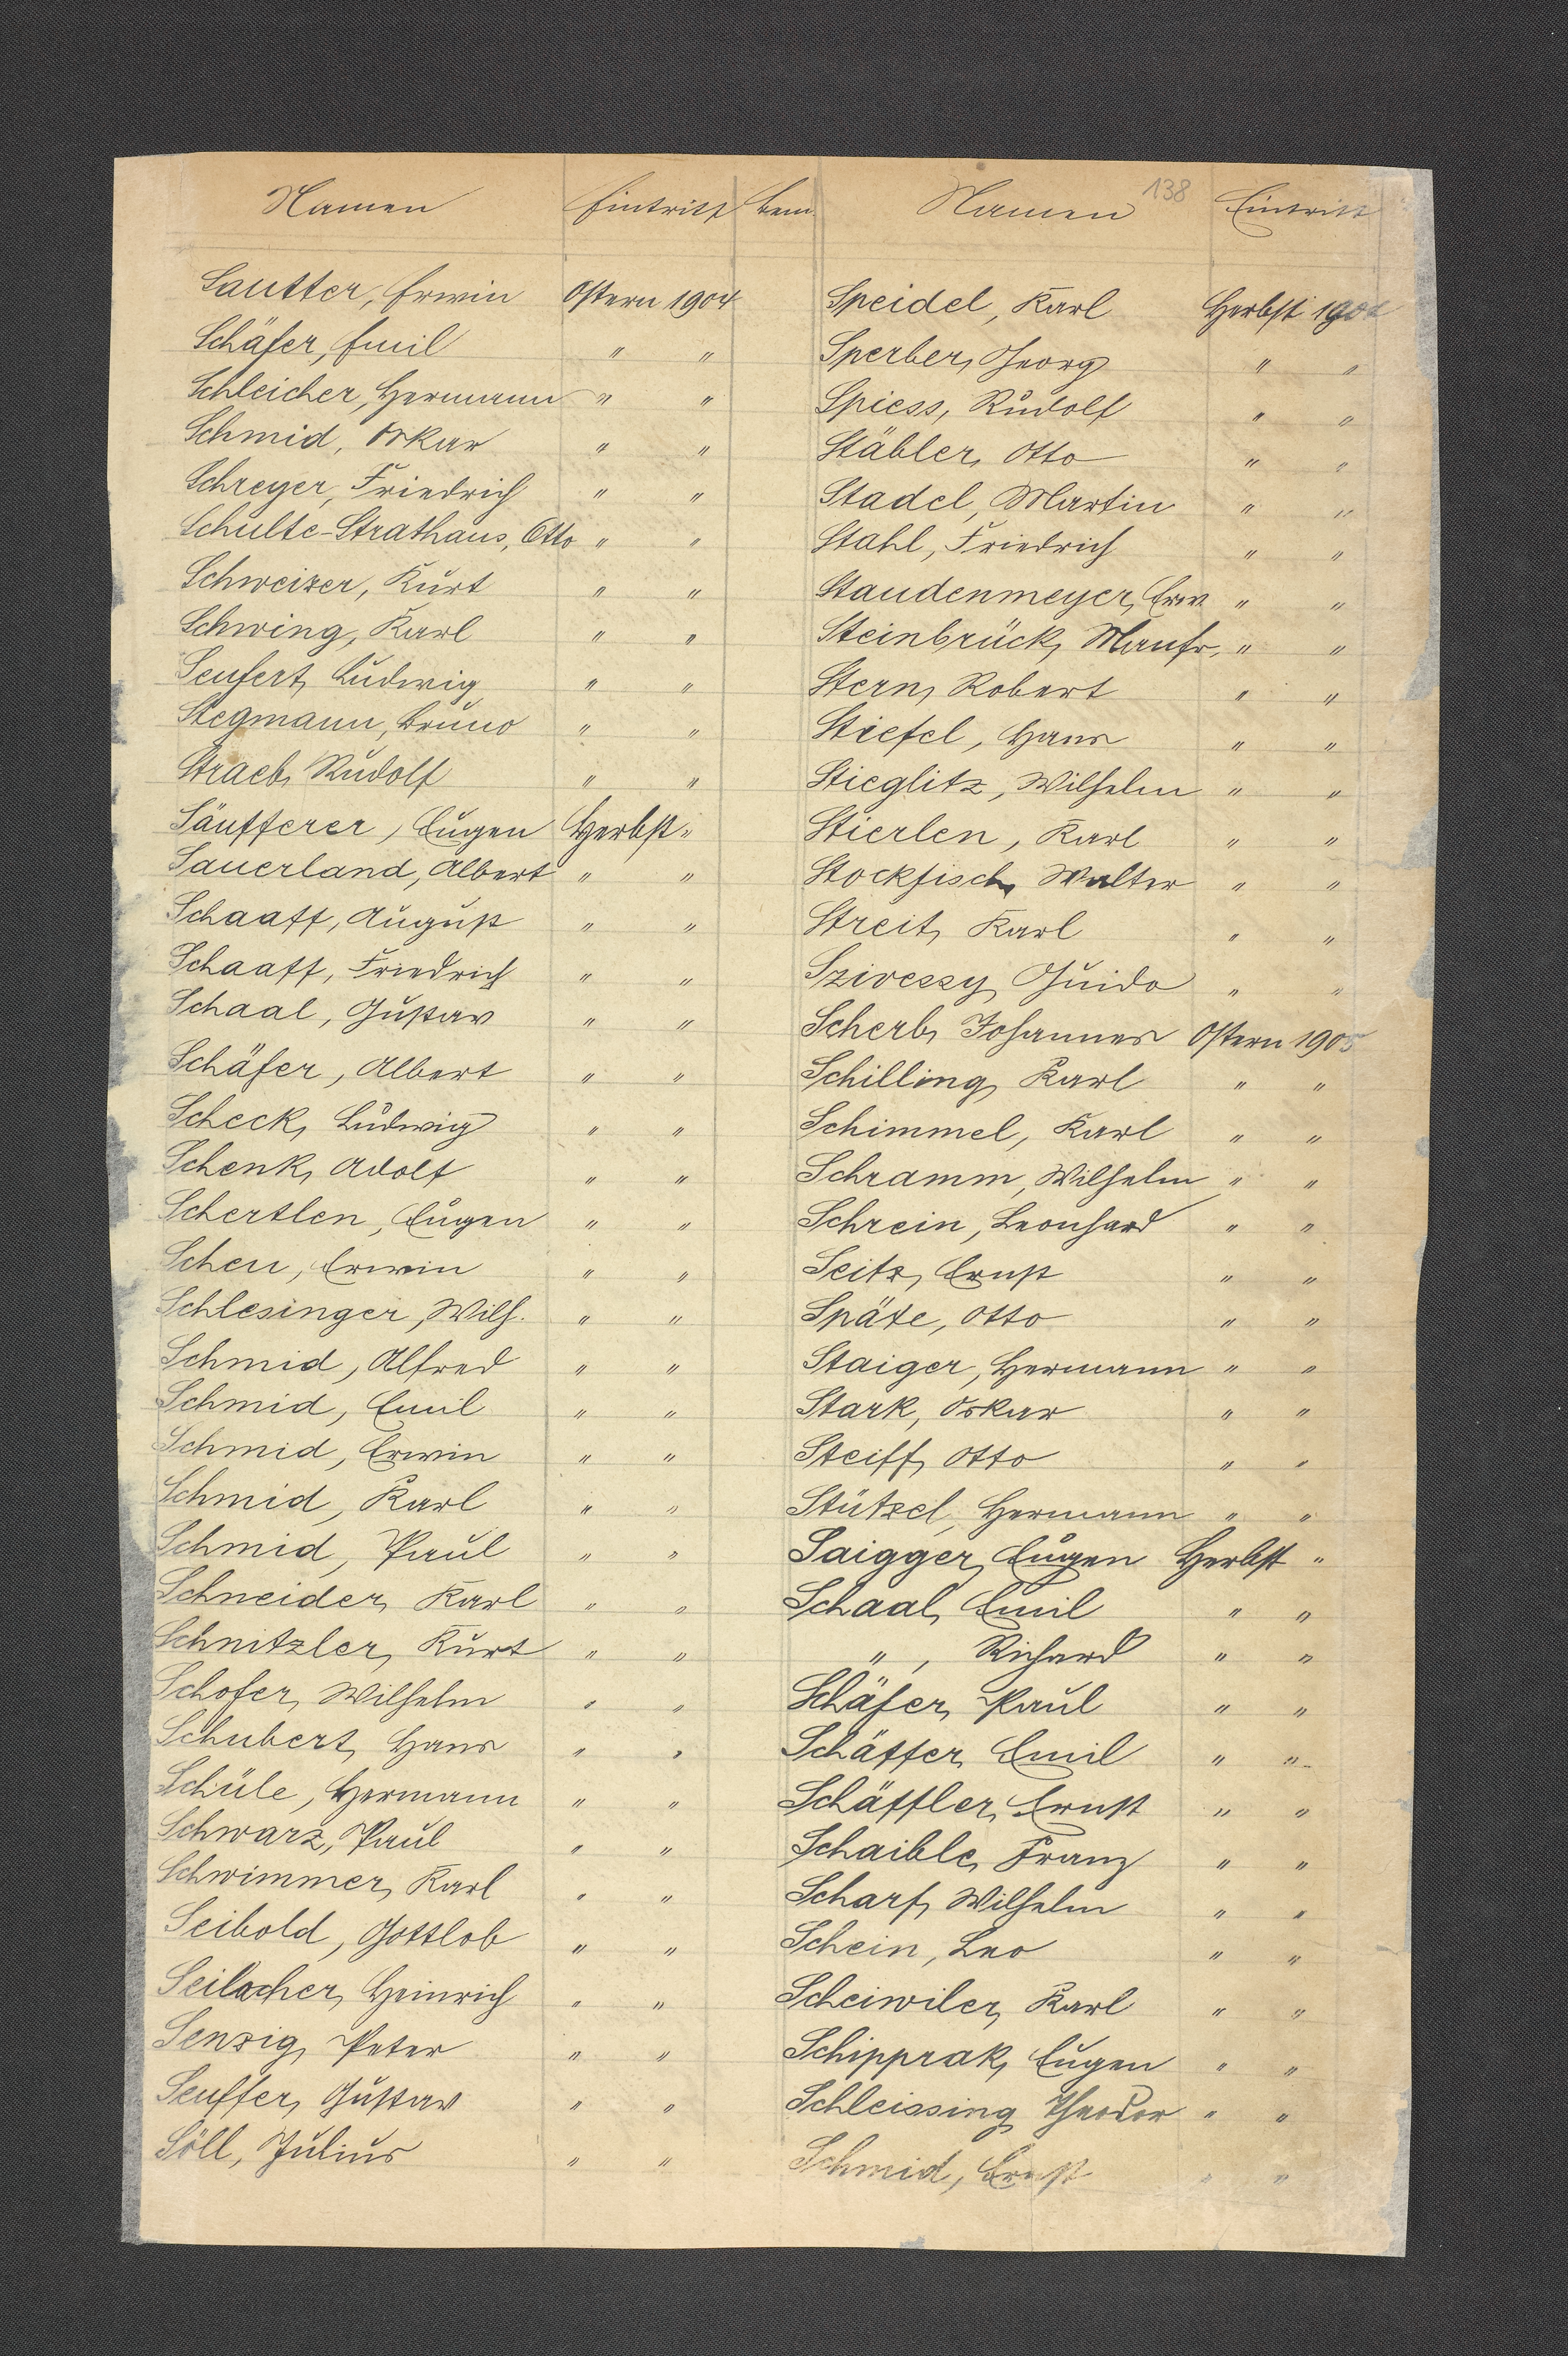 138
Namen Eintritt Bem.
Sautter, Erwin Ostern 1904
Schäfer, Emil " "
Schleicher, Hermann " "
Schmid, Oskar " "
Schreyer, Friedrich " "
Schulte-Strathaus, Otto " "
Schweizer, Kurt " "
Schwing, Karl " "
Seufert, Ludwig " "
Stegmann, Bruno " "
Straeb, Rudolf " "
Säufferer, Eugen Herbst "
Sauerland, Albert " "
Schaaff, August " "
Schaaff, Friedrich " "
Schaal, Gustav " "
Schäfer, Albert " "
Scheck, Ludwig " "
Schenk, Adolf " "
Schertlen, Eugen " "
Scheu, Erwin " "
Schlesinger, Wilh. " "
Schmid, Alfred " "
Schmid, Emil " "
Schmid, Erwin " "
Schmid, Karl " "
Schmid, Paul " "
Schneider, Karl " "
Schnitzler, Kurt " "
Schofer, Wilhelm " "
Schubert, Hans " "
Schüle, Hermann " "
Schwarz, Paul " "
Schwimmer, Karl " "
Seibold, Gottlob " "
Seilacher, Heinrich " "
Senzig, Peter " "
Seuffer, Gustav " "
Söll, Julius " "
Namen Eintritt
Speidel, Karl Herbst 1904
Sperber, Georg " "
Spiess, Rudolf " "
Stäbler, Otto " "
Stadel, Martin " "
Stahl, Friedrich " "
Staudenmeyer, Erw. " "
Steinbrück, Manfr. " "
Stern, Robert " "
Stiefel, Hans " "
Stieglitz, Wilhelm " "
Stierlen, Karl " "
Stockfisch, Walter " "
Streit, Karl " "
Szivessy, Guido " "
Scherb, Johannes Ostern 1905
Schilling, Karl " "
Schimmel, Karl " "
Schramm, Wilhelm " "
Schrein, Leonhard " "
Seitz, Ernst " "
Späte, Otto " "
Staiger, Hermann " "
Stark, Oskar " "
Steiff, Otto " "
Stützel, Hermann " "
Saigger, Eugen Herbst "
Schaal, Emil " "
", Richard " "
Schäfer, Paul " "
Schäffer, Emil " "
Schäffler, Ernst " "
Schaible, Franz " "
Scharf, Wilhelm " "
Schein, Leo " "
Scheiwiler, Karl " "
Schipprak, Eugen " "
Schleissing, Theodor " "
Schmid, Ernst " "